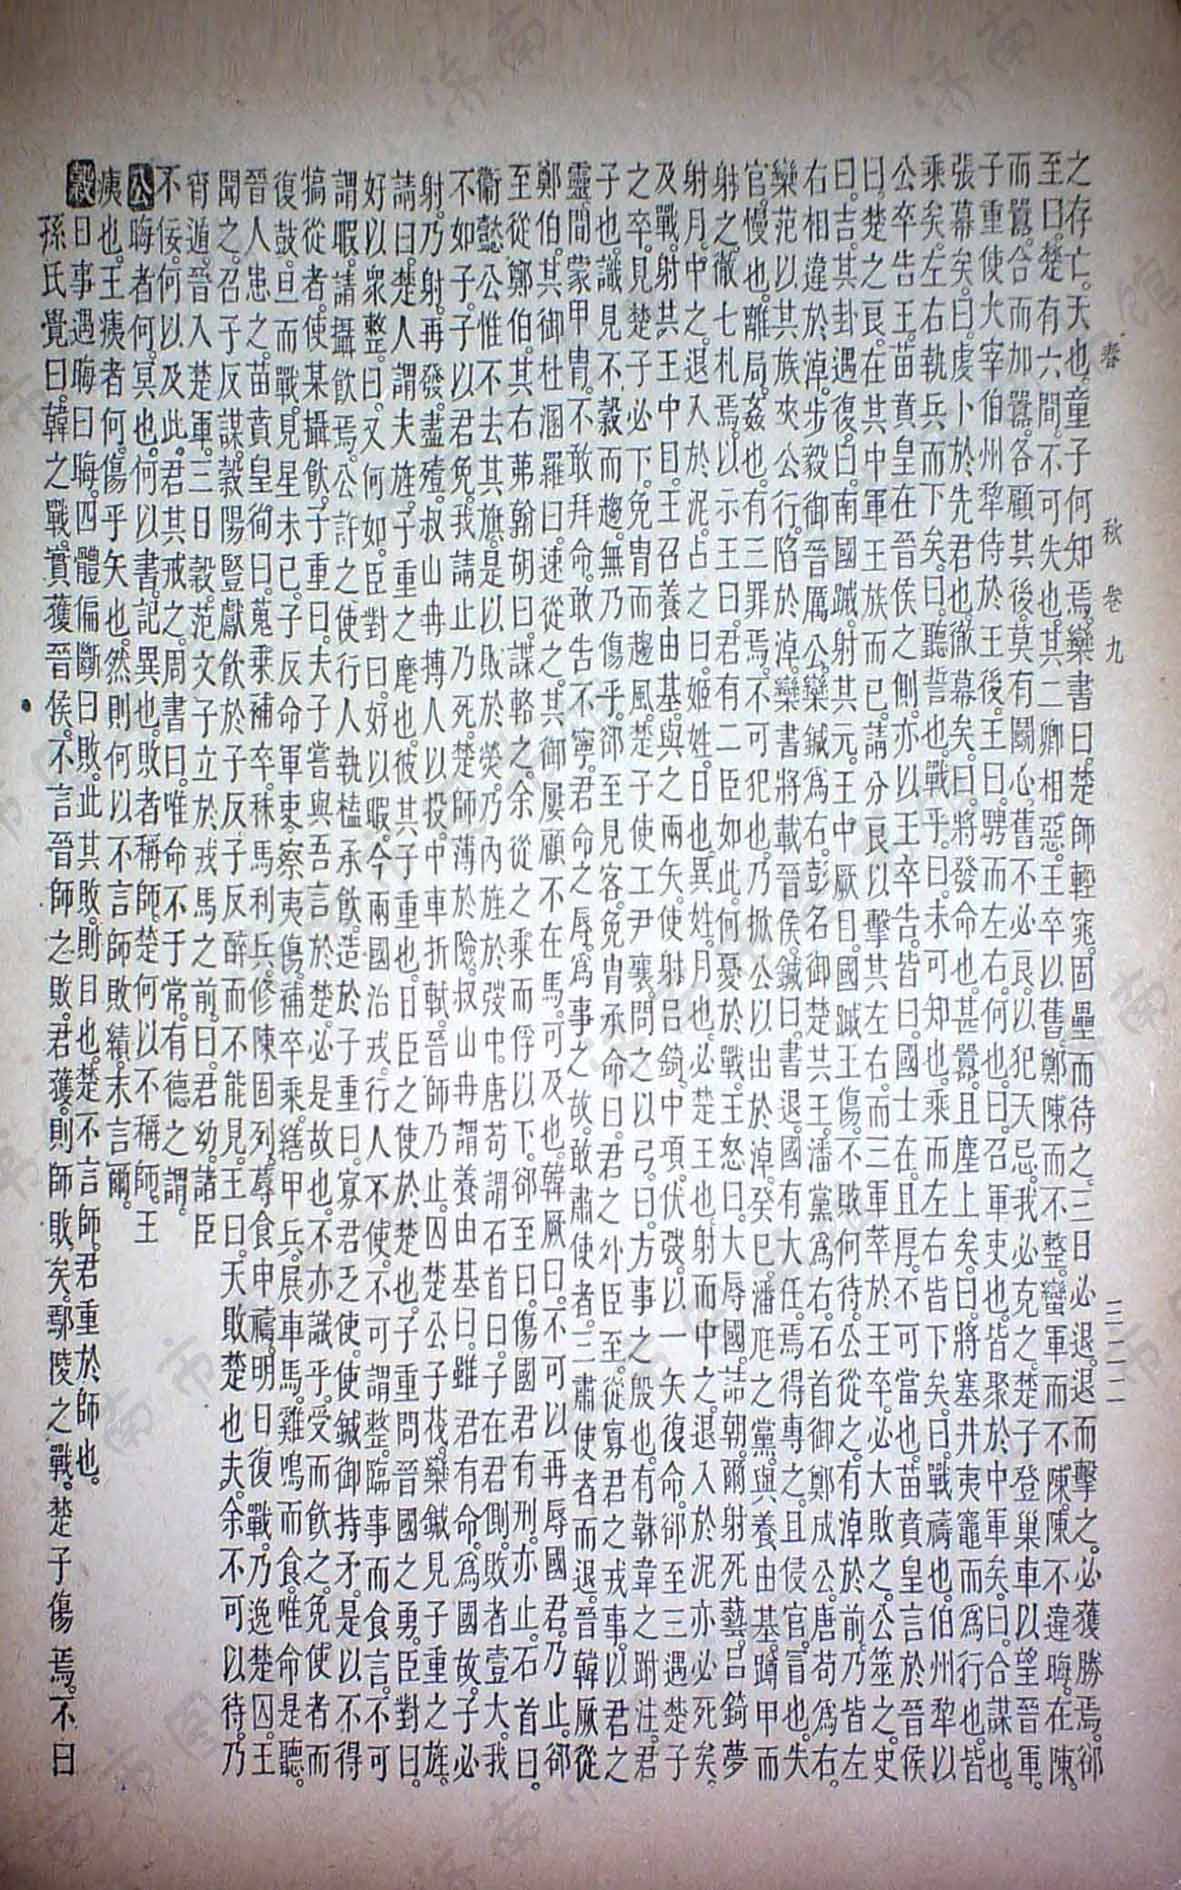 春　秋　卷九　三二二
之存亡。天也。童子何知焉。欒書曰。楚師輕窕。固壘而待之。三日必退。退而擊之。必獲勝焉。郤
至曰。楚有六間。不可失也。其二卿相惡。王卒以舊。鄭陳而不整。蠻軍而不陳。陳不違晦。在陳
而囂。合而加囂。各顧其後。莫有鬭心。舊不必良。以犯天忌。我必克之。楚子登巢車以望晉軍。
子重使大宰伯州犂侍於王後。王曰。騁而左右。何也。曰。召軍吏也。皆聚於中軍矣。曰。合謀也。
張幕矣。曰。虔卜於先君也。徹幕矣。曰。將發命也。甚囂。且塵上矣。曰。將塞井夷竈而爲行也。皆
乘矣。左右執兵而下矣。曰。聽誓也。戰乎。曰。未可知也。乘而左右皆下矣。曰。戰禱也。伯州犂以
公卒告王。苗賁皇在晉侯之側。亦以王卒告。皆曰。國士在。且厚。不可當也。苗賁皇言於晉侯
曰。楚之良。在其中軍王族而已。請分良以擊其左右。而三軍萃於王卒。必大敗之。公筮之。史
曰。吉。其卦遇復。曰。南國䠞。射其元。王中厥目。國䠞王傷。不敗何待。公從之。有淖於前。乃皆左
右相違於淖。步毅御晉厲公。欒鍼爲右。彭名御楚共王。潘黨爲右。石首御鄭成公。唐苟爲右。
欒范以其族夾公行。陷於淖。欒書將載晉侯。鍼曰。書退。國有大任。焉得專之。且侵官。冒也。失
官。慢也。離局。姦也。有三罪焉。不可犯也。乃掀公以出於淖。癸巳。潘尫之黨。與養由基蹲甲而
射之。徹七札焉。以示王曰。君有二臣如此。何憂於戰。王怒曰。大辱國。詰朝。爾射死藝。呂錡夢
射月。中之。退入於泥。占之曰。姬姓。日也。異姓。月也。必楚王也。射而中之。退入於泥。亦必死矣。
及戰。射共王中目。王召養由基。與之兩矢。使射呂錡。中項。伏弢。以一矢復命。郤至三遇楚子
之卒。見楚子必下。免冑而趨風。楚子使工尹襄問之以弓。曰。方事之殷也。有韎韋之跗注。君
子也。識見不穀而趨。無乃傷乎。郤至見客。免冑承命曰。君之外臣至。從寡君之戎事。以君之
靈。間蒙甲冑。不敢拜命。敢告不寧。君命之辱。爲事之故。敢肅使者。三肅使者而退。晉韓厥從
鄭伯。其御杜溷羅曰。速從之。其御屢顧。不在馬。可及也。韓厥曰。不可以再辱國君。乃止。郤
至從鄭伯。其右茀翰胡曰。諜輅之。余從之乘而俘以下。郤至曰。傷國君有刑。亦止。石首曰。
衞懿公惟不去其旗。是以敗於熒。乃內旌於弢中。唐苟謂石首曰。子在君側。敗者壹大。我
不如子。子以君免。我請止。乃死。楚師薄於險。叔山冉謂養由基曰。雖君有命。爲國故。子必
射。乃射。再發。盡殪。叔山冉搏人以投。中車折軾。晉師乃止。囚楚公子茷。欒鍼見子重之旌。
請曰。楚人謂夫旌。子重之麾也。彼其子重也。日臣之使於楚也。子重問晉國之勇。臣對曰。
好以衆整。曰。又何如。臣對曰。好以暇。今兩國治戎。行人不使。不可謂整。臨事而食言。不可
謂暇。請攝飲焉。公許之。使行人執榼承飲。造於子重曰。寡君乏使。使鍼御持矛。是以不得
犒從者。使某攝飲。子重曰。夫子嘗與吾言於楚。必是故也。不亦識乎。受而飲之。免使者而
復鼓。旦而戰。見星未已。子反命軍吏。察夷傷。補卒乘。繕甲兵。展車馬。雞鳴而食。唯命是聽。
晉人患之。苗賁皇徇曰。蒐乘補卒。秣馬利兵。修陳固列。蓐食申禱。明日復戰。乃逸楚囚。王
聞之。召子反謀。穀陽豎獻飲於子反。子反醉而不能見。王曰。天敗楚也夫。余不可以待。乃
宵遁。晉入楚軍。三日穀。范文子立於戎馬之前。曰。君幼。諸臣
不佞。何以及此。君其戒之。周書曰。唯命不于常。有德之謂。
公晦者何。冥也。何以書。記異也。敗者稱師。楚何以不稱師。王
痍也。王痍者何。傷乎矢也。然則何以不言師敗績。末言爾。
穀日事遇晦曰晦。四體偏斷曰敗。此其敗。則目也。楚不言師。君重於師也。
孫氏覺曰。韓之戰。實獲晉侯。不言晉師之敗。君獲。則師敗矣。鄢陵之戰。楚子傷焉。不曰